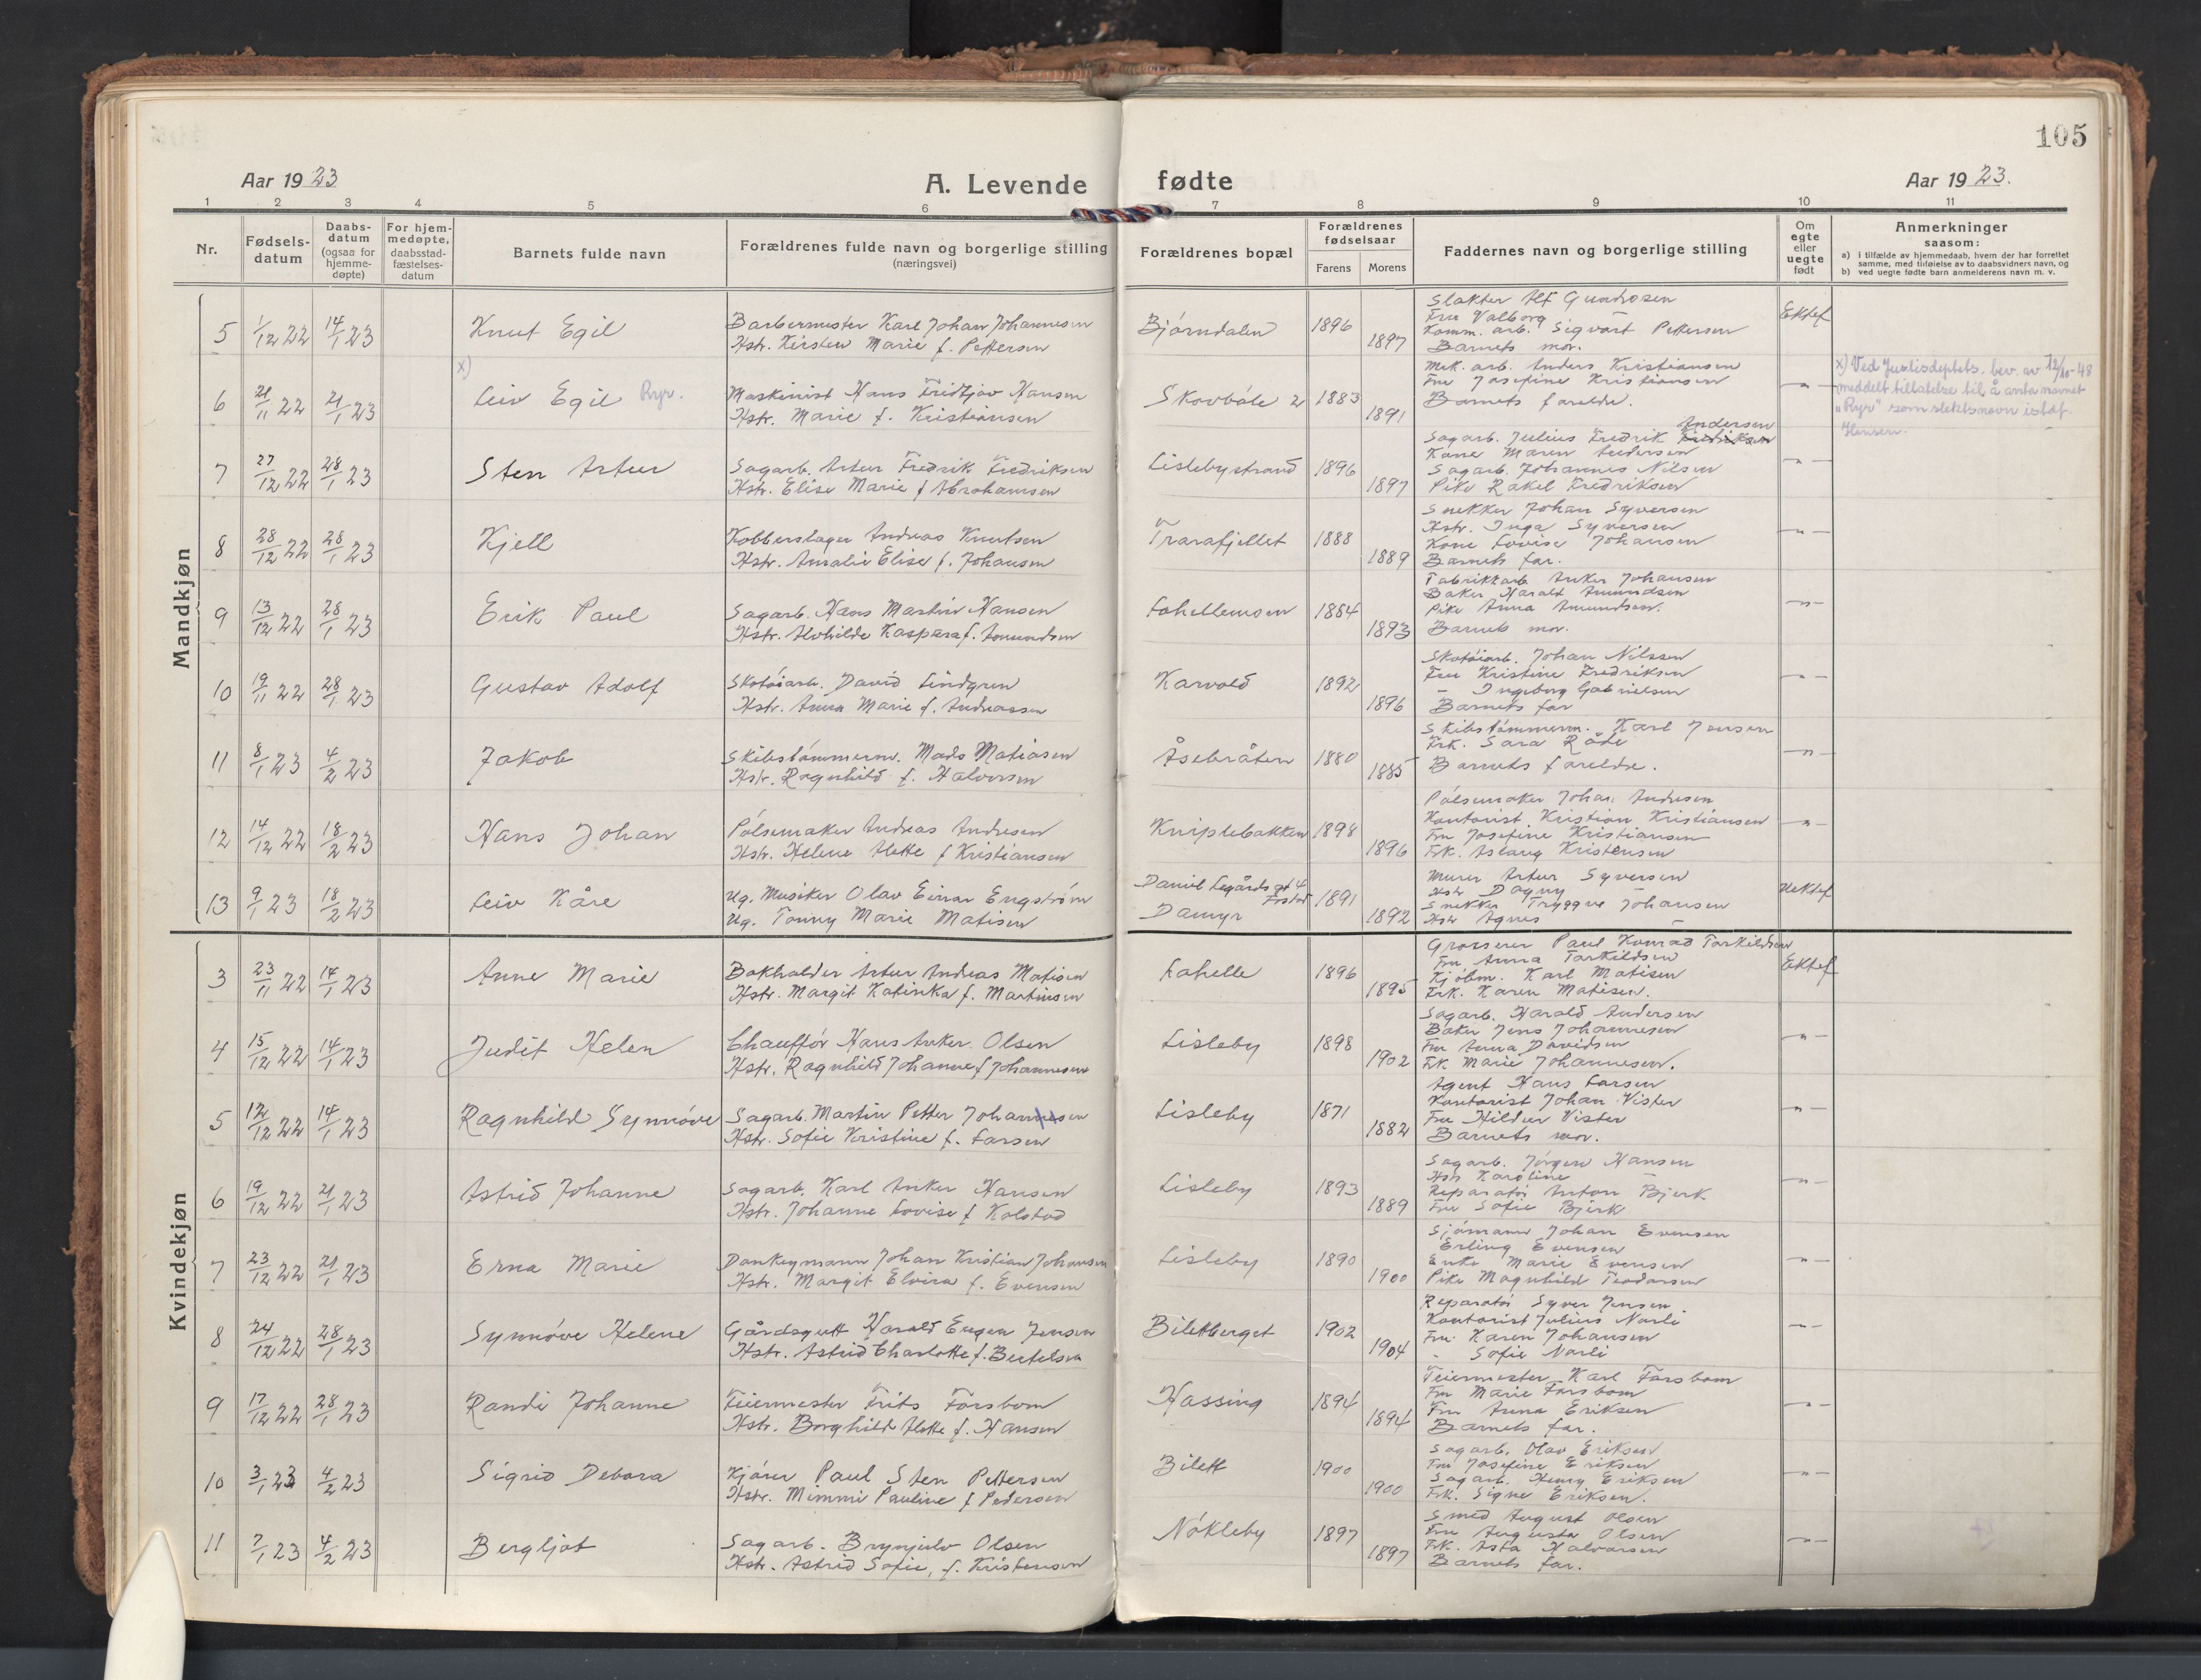 105
Aar 1923
A. Levende fødte
Aar 1923.
1 2 3 4 5 6 7 8 9 10 11
Nr.
Fødselsdatum
Daabsdatum (ogsaa for hjemmedøpte)
For hjemmedøpte, daabsstadfæstelsesdatum
Barnets fulde navn
Forældrenes fulde navn og borgerlige stilling (næringsvei)
Forældrenes bopæl
Forældrenes fødselsaar
Farens Morens
Faddernes navn og borgerlige stilling
Om egte eller uegte født
Anmerkninger saasom:
a) i tilfælde av hjemmedaab, hvem der har forrettet samme, med tilføielse av to daabsvidners navn, og
b) ved uegte fødte barn anmelderens navn m. v.
Mandkjøn
5 1/12 22 14/1 23 Knut Egil
Barbermester Karl Johan Johannesen
Hstr. Kirsten Marie f. Pettersen
Bjørndalen 1896 1897
Slakter Alf Gundrosen
Fru Valborg
Komm. arb. Sigvart Pettersen
Barnets mor.
Ektef
6 21/11 22 21/1 23 x) Leiv Egil Ryr.
Maskinist Hans Fridtjov Hansen
Hstr. Marie f. Kristiansen
Skovbøle 2 1883 1891
Mek. arb. Anders Kristiansen
Fru Josefine Kristiansen
Barnets foreldre.
— " —
x) Ved Justisdeptets. bev. av 12/10-48
meddelt tillatelse til å anta navnet
"Ryr" som slektsnavn istdf.
Hansen.
7 27/12 22 28/1 23 Sten Artur
Sagarb. Artur Fredrik Fredriksen
Hstr. Elise Marie f Abrahamsen
Lislebystrand 1896 1897
Andersen
Sagarb. Julius Fredrik Fredriksen
Kone Maren Andersen
Sagarb. Johannes Nilsen
Pike Rakel Fredriksen
— " —
8 28/12 22 28/1 23 Kjell
Kobberslager Andreas Knutsen
Hstr. Amalie Elise f. Johansen
Trarafjellet 1888 1889
Snekker Johan Syversen
Hstr. Inga Syversen
Kone Lovise Johansen
Barnets far.
— " —
9 13/12 22 28/1 23 Erik Paul
Sagarb. Hans Martin Hansen
Hstr. Alvhilde Kaspara f. Amundsen
Lahellemoen 1884 1893
Fabrikkarb. Anker Johansen
Baker Harald Amundsen
Pike Anna Amundsen.
Barnets mor.
— " —
10 19/11 22 28/1 23 Gustav Adolf
Skotøiarb. David Lindgren
Hstr. Anna Marie f. Andreassen
Karvold 1892 1896
Skotøiarb. Johan Nilssen
Fru Kristine Fredriksen
— Ingeborg Gabrielsen
Barnets far
— " —
11 8/1 23 4/2 23 Jakob
Skibstømmerm. Mads Matiasen
Hstr. Ragnhild f. Halvorsen
Åsebråten 1880 1885
Skibstømmerm. Karl Jensen
Frk. Sara Råde
Barnets foreldre.
— " —
12 14/12 22 18/2 23 Hans Johan
Pølsemaker Andreas Andresen
Hstr. Helene Alette f Kristiansen
Kniplebakken 1898 1896
Pølsemaker Johan Andresen
Kontorist Kristian Kristiansen
Fru Josefine Kristiansen
Frk. Aslaug Kristensen
— " —
13 9/1 23 18/2 23 Leiv Kåre
Ug. Musiker Olav Einar Engstrøm
Ug. Tonny Marie Matisen
Daniel Legårds gt 4
Damyr 1891 1892
Murer Artur Syversen
Hstr Dagny —
Snekker Tryggve Johansen
Hstr Agnes —
Uektef
Kvindekjøn
3 23/11 22 14/1 23 Anne Marie
Bokholder Artur Andreas Matisen
Hstr. Margit Katinka f. Martinsen
Lahelle 1896 1895
Grosserer Paul Konrad Torkildsen
Fru Anna Torkildsen
Kjøbm. Karl Matisen
Frk. Karen Matisen.
Ektef
4 15/12 22 14/1 23 Judit Helen
Chauffør Hans Anker Olsen
Hstr. Ragnhild Johanne f Johannesen
Lisleby 1898 1902
Sagarb. Harald Andersen
Baker Jens Johannesen
Fru Anna Davidsen
Frk Marie Johannesen.
— " —
5 12/12 22 14/1 23 Ragnhild Synnøve
Sagarb. Martin Petter Johannesen
Hstr. Sofie Kristine f. Larsen
Lisleby 1871 1882
Agent Hans Larsen
Kontorist Johan Vister
Fru Hildur Vister
Barnets mor.
— " —
6 19/12 22 21/1 23 Astrid Johanne
Sagarb. Karl Anker Hansen
Hstr. Johanne Lovise f Kolstad
Lisleby 1893 1889
Sagarb. Jørgen Hansen
Hstr Karoline —
Reparatør Anton Bjerk
Fru Sofie Bjerk
— " —
7 23/12 22 21/1 23 Erna Marie
Donkeymann Johan Kristian Johansen
Hstr. Margit Elvira f. Evensen
Lisleby 1890 1900
Sjømann Johan Evensen
Erling Evensen
Enke Marie Evensen
Pike Magnhild Teodorsen
— " —
8 24/12 22 28/1 23 Synnøve Helene
Gårdsgutt Harald Eugen Jensen
Hstr. Astrid Charlotte f. Bertelsen
Biletberget 1902 1904
Reparatør Syver Jensen.
Kontorist Julius Narli
Fru Karen Johansen
- Sofie Narli
— " —
9 17/12 22 28/1 23 Randi Johanne
Feiermester Frits Forsbom
Hstr. Borghild Alette f. Hansen
Hassing 1894 1894
Feiermester Karl Forsbom
Fru Marie Forsbom
Fru Anna Eriksen
Barnets far.
— " —
10 3/1 23 4/2 23 Sigrid Debora
Kjører Paul Sten Pettersen
Hstr. Mimmi Pauline f Pedersen
Bilett 1900 1900
Sagarb. Olav Eriksen
Fru Josefine Eriksen
Sagarb. Henry Eriksen
Frk. Signe Eriksen.
— " —
11 7/1 23 4/2 23 Bergljot
Sagarb. Brynjulv Olsen
Hstr. Astrid Sofie, f. Kristensen
Nøkleby 1897 1897
Smed August Olsen
Fru Augusta Olsen
Frk. Asta Halvorsen
Barnets far.
— " —